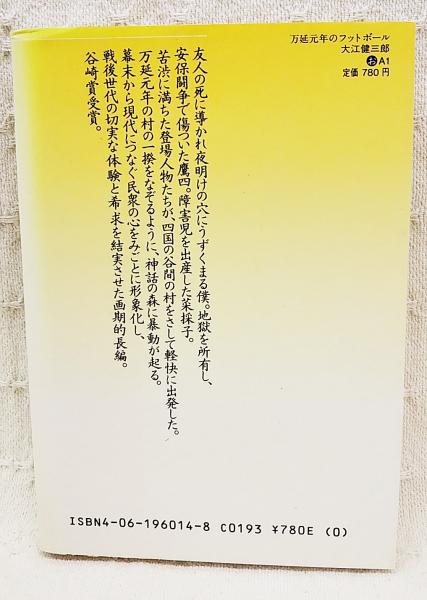 万延元年のフットボール
大江健三郎
おA1
定価780円
友人の死に導かれ夜明けの穴にうずくまる僕。地獄を所有し、
安保闘争で傷ついた鷹四。障害児を出産した菜採子。
苦渋に満ちた登場人物たちが、四国の谷間の村をさして軽快に出発した。
万延元年の村の一揆をなぞるように、神話の森に暴動が起る。
幕末から現代につなぐ民衆の心をみごとに形象化し、
戦後世代の切実な体験と希求を結実させた画期的長編。
谷崎賞受賞。
ISBN4-06-196014-8 C0193 ¥780E (0)